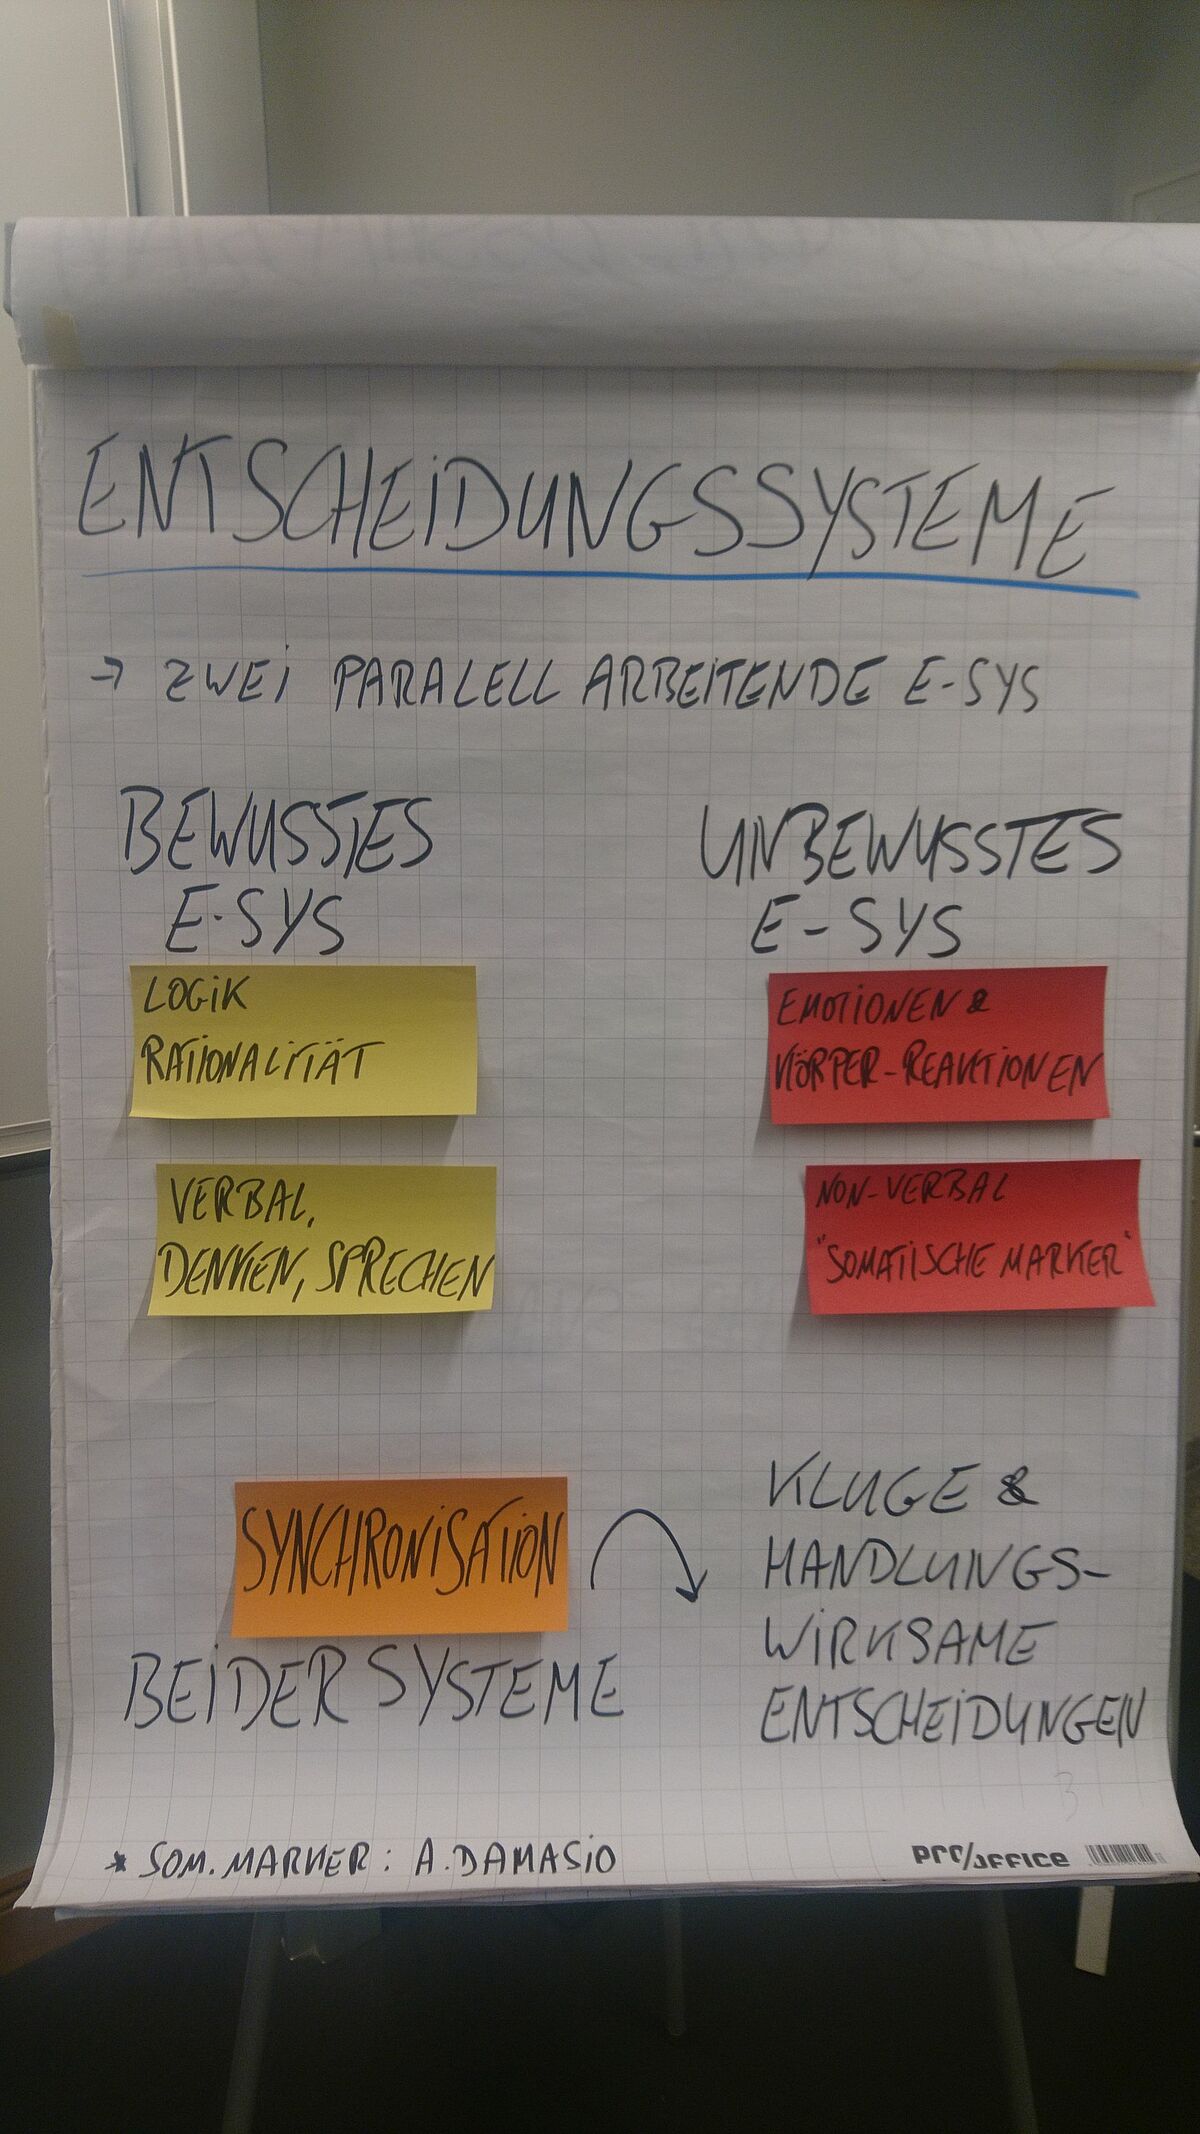 ENTSCHEIDUNGSSYSTEME
→ ZWEI PARALELL ARBEITENDE E-SYS
BEWUSSTES
E-SYS
LOGIK
RATIONALITÄT
VERBAL,
DENKEN, SPRECHEN
UNBEWUSSTES
E-SYS
EMOTIONEN &
KÖRPER-REAKTIONEN
NON-VERBAL
"SOMATISCHE MARKER"
SYNCHRONISATION
BEIDER SYSTEME
KLUGE &
HANDLUNGS-
WIRKSAME
ENTSCHEIDUNGEN
* SOM. MARKER: A. DAMASIO
pro/office